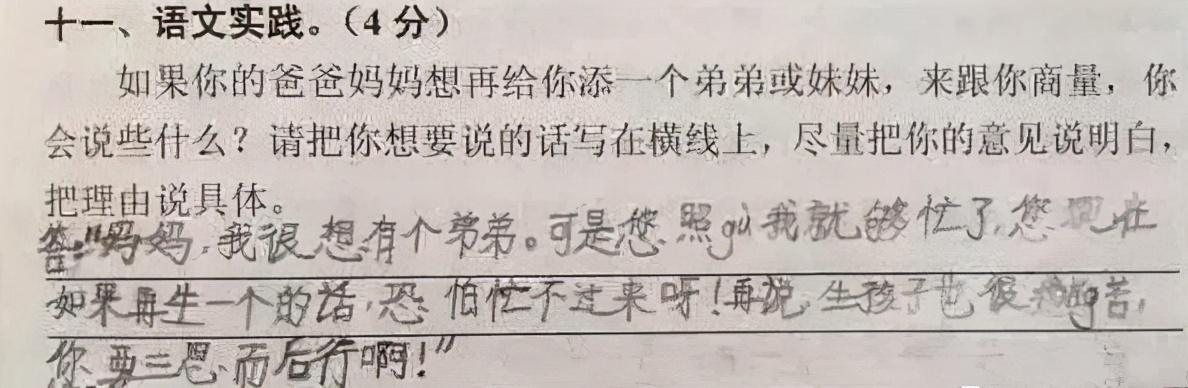 十一、语文实践。(4分)
如果你的爸爸妈妈想再给你添一个弟弟或妹妹，来跟你商量，你
会说些什么？请把你想要说的话写在横线上，尽量把你的意见说明白，
把理由说具体。
答:"妈妈，我很想有个弟弟。可是您照gù我就够忙了，您现在
如果再生一个的话，恐怕忙不过来呀！再说，生孩子也很苦，
你要三思而后行啊！"